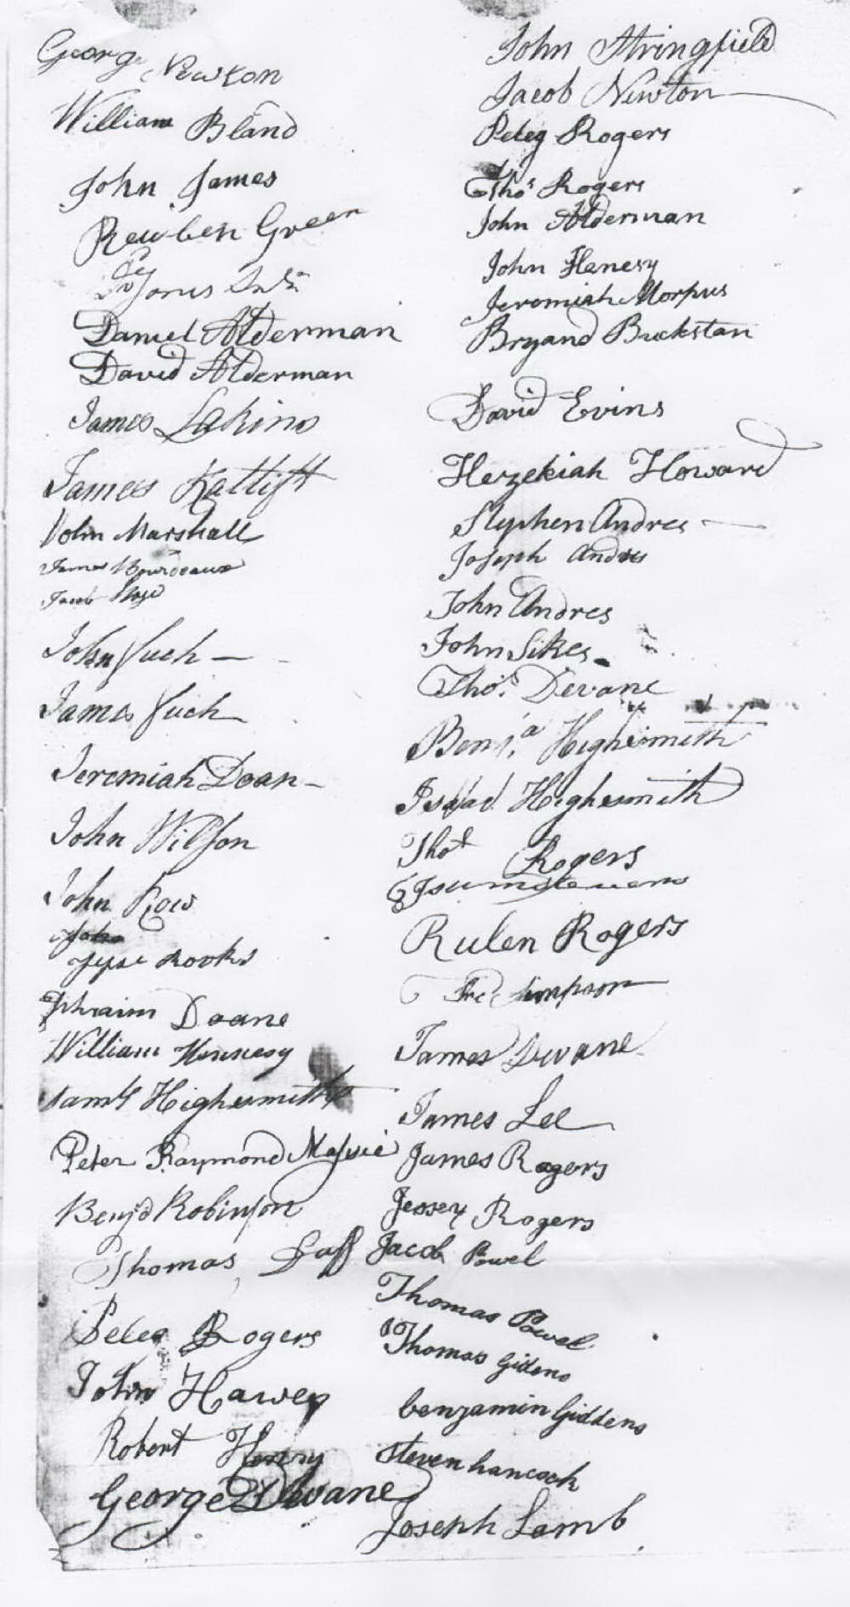 George Newton
William Bland
John James
Reuben Green
Jones
Daniel Alderman
David Alderman
James Lakins
James Rattlift
John Marshall
James Bourdeaux
Jacob
John fuch
James fuch
Jeremiah Doan
John Wilson
John Row
John
Jesse Rooks
Ephraim Doane
William Hennesy
Saml Highsmith
Peter Raymond Massie
Benjd Robinson
Thomas Duff
Peleg Rogers
John Hawes
Robert Henry
George Devane
John Stringfield
Jacob Newton
Peleg Rogers
Thos Rogers
John Alderman
John Henesy
Jeremiah Morpus
Bryand Buckstan
David Evins
Hezekiah Howard
Stephen Andres
Joseph Andres
John Andres
John Sikes
Thos. Devane
Benja Highsmith
Isaac Highesmith
Thos Rogers
Rulen Rogers
Simpson
James Devane
James Lee
James Rogers
Jessey Rogers
Jacob Powel
Thomas Powel
Thomas Gidens
benjamin Giddens
steven hancock
Joseph Lamb